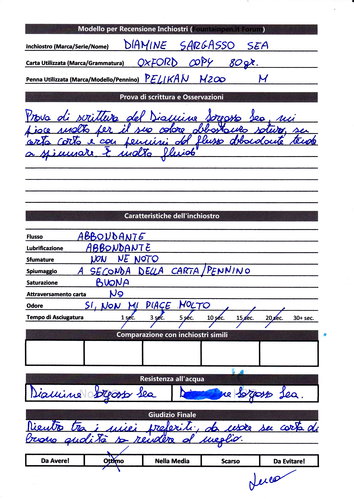 Modello per Recensione Inchiostri (fountainpen.it Forum)
Inchiostro (Marca/Serie/Nome) DIAMINE SARGASSO SEA
Carta Utilizzata (Marca/Grammatura) OXFORD COPY 80 gr.
Penna Utilizzata (Marca/Modello/Pennino) PELIKAN M200 M
Prova di scrittura e Osservazioni
Prova di scrittura del Diamine Sargasso Sea, mi
piace molto per il suo colore abbastanza saturo, su
carta corta e con pennini dal flusso abbondante tende
a spiumare. È molto fluido
Caratteristiche dell'inchiostro
Flusso ABBONDANTE
Lubrificazione ABBONDANTE
Sfumature NON NE NOTO
Spiumaggio A SECONDA DELLA CARTA/PENNINO
Saturazione BUONA
Attraversamento carta NO
Odore SI, NON MI PIACE MOLTO
Tempo di Asciugatura 1 sec. 3 sec. 5 sec. 10 sec. 15 sec. 20 sec. 30+ sec.
Comparazione con inchiostri simili
Resistenza all'acqua
Diamine Sargasso Sea Diamine Sargasso Sea.
Giudizio Finale
Rientra tra i miei preferiti, da usare su carta di
buona qualità sa rendere al meglio.
Da Avere! Ottimo Nella Media Scarso Da Evitare!
Luca